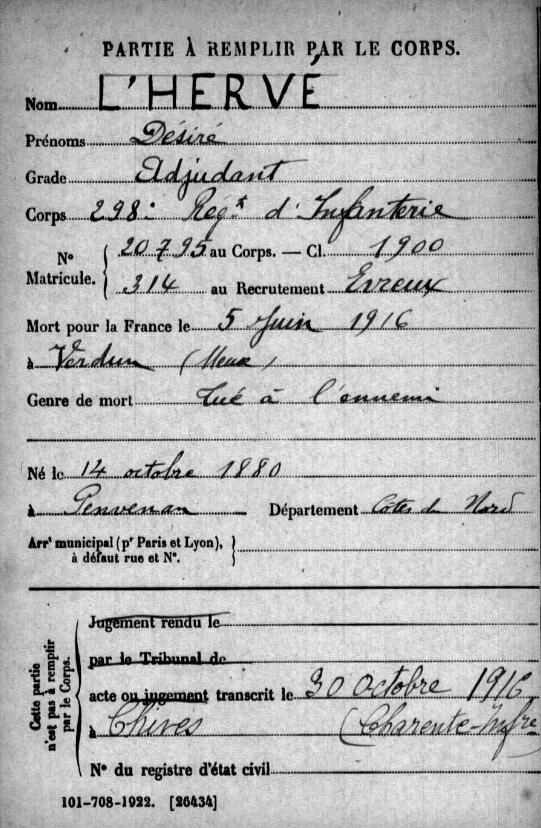 PARTIE À REMPLIR PAR LE CORPS.
Nom L'HERVÉ
Prénoms Désiré
Grade Adjudant
Corps 298e Regt d'Infanterie
N° Matricule. { 20795 au Corps. — Cl. 1900
314 au Recrutement Evreux
Mort pour la France le 5 Juin 1916
à Verdun (Meuse)
Genre de mort tué à l'ennemi
Né le 14 octobre 1880
à Penvenan Département Côtes du Nord
Arrt municipal (pr Paris et Lyon), }
à défaut rue et N°.
Cette partie n'est pas à remplir par le Corps.
Jugement rendu le
par le Tribunal de
acte ou jugement transcrit le 30 octobre 1916
à Chives (Charente-Infre
N° du registre d'état civil
101-708-1922. [26434]